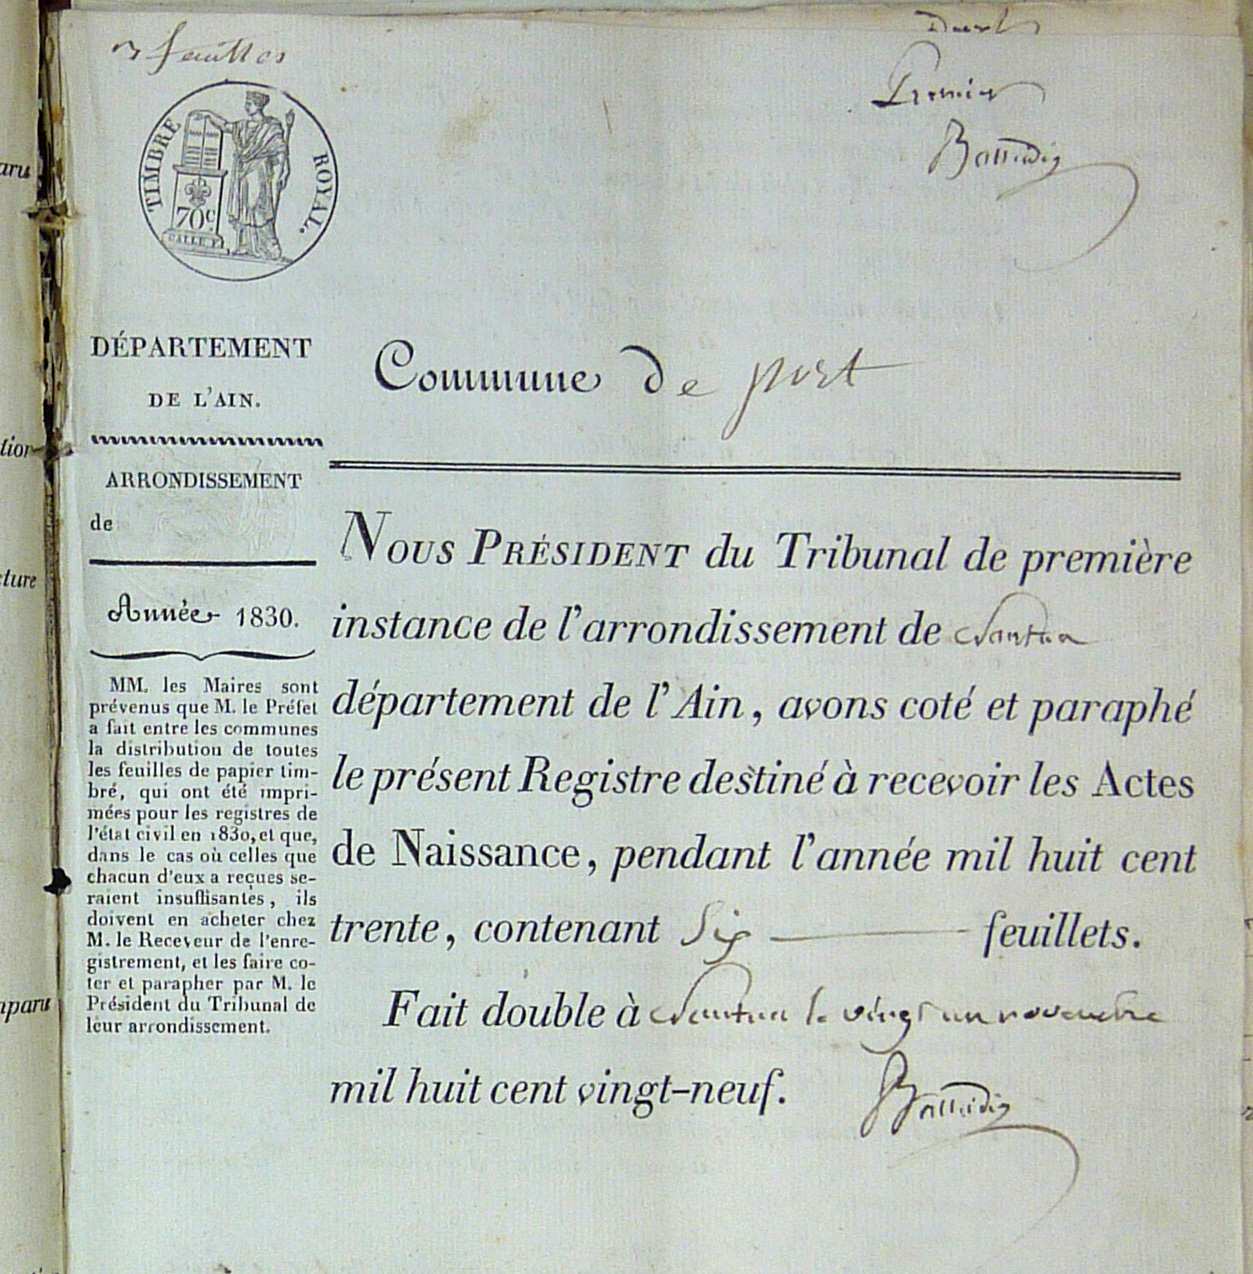 3 feuilles
Premier
TIMBRE ROYAL.
70c.
DÉPARTEMENT
DE L'AIN.
Commune de port
ARRONDISSEMENT
de
Année 1830.
MM. les Maires sont
prévenus que M. le Préfet
a fait entre les communes
la distribution de toutes
les feuilles de papier tim-
bré, qui ont été impri-
mées pour les registres de
l'état civil en 1830, et que,
dans le cas où celles que
chacun d'eux a reçues se-
raient insuffisantes, ils
doivent en acheter chez
M. le Receveur de l'enre-
gistrement, et les faire co-
ter et parapher par M. le
Président du Tribunal de
leur arrondissement.
NOUS PRÉSIDENT du Tribunal de première
instance de l'arrondissement de Nantua
département de l'Ain, avons coté et paraphé
le présent Registre destiné à recevoir les Actes
de Naissance, pendant l'année mil huit cent
trente, contenant Six feuillets.
Fait double à Nantua le vingt un novembre
mil huit cent vingt-neuf.
aru
tion
cture
mparu